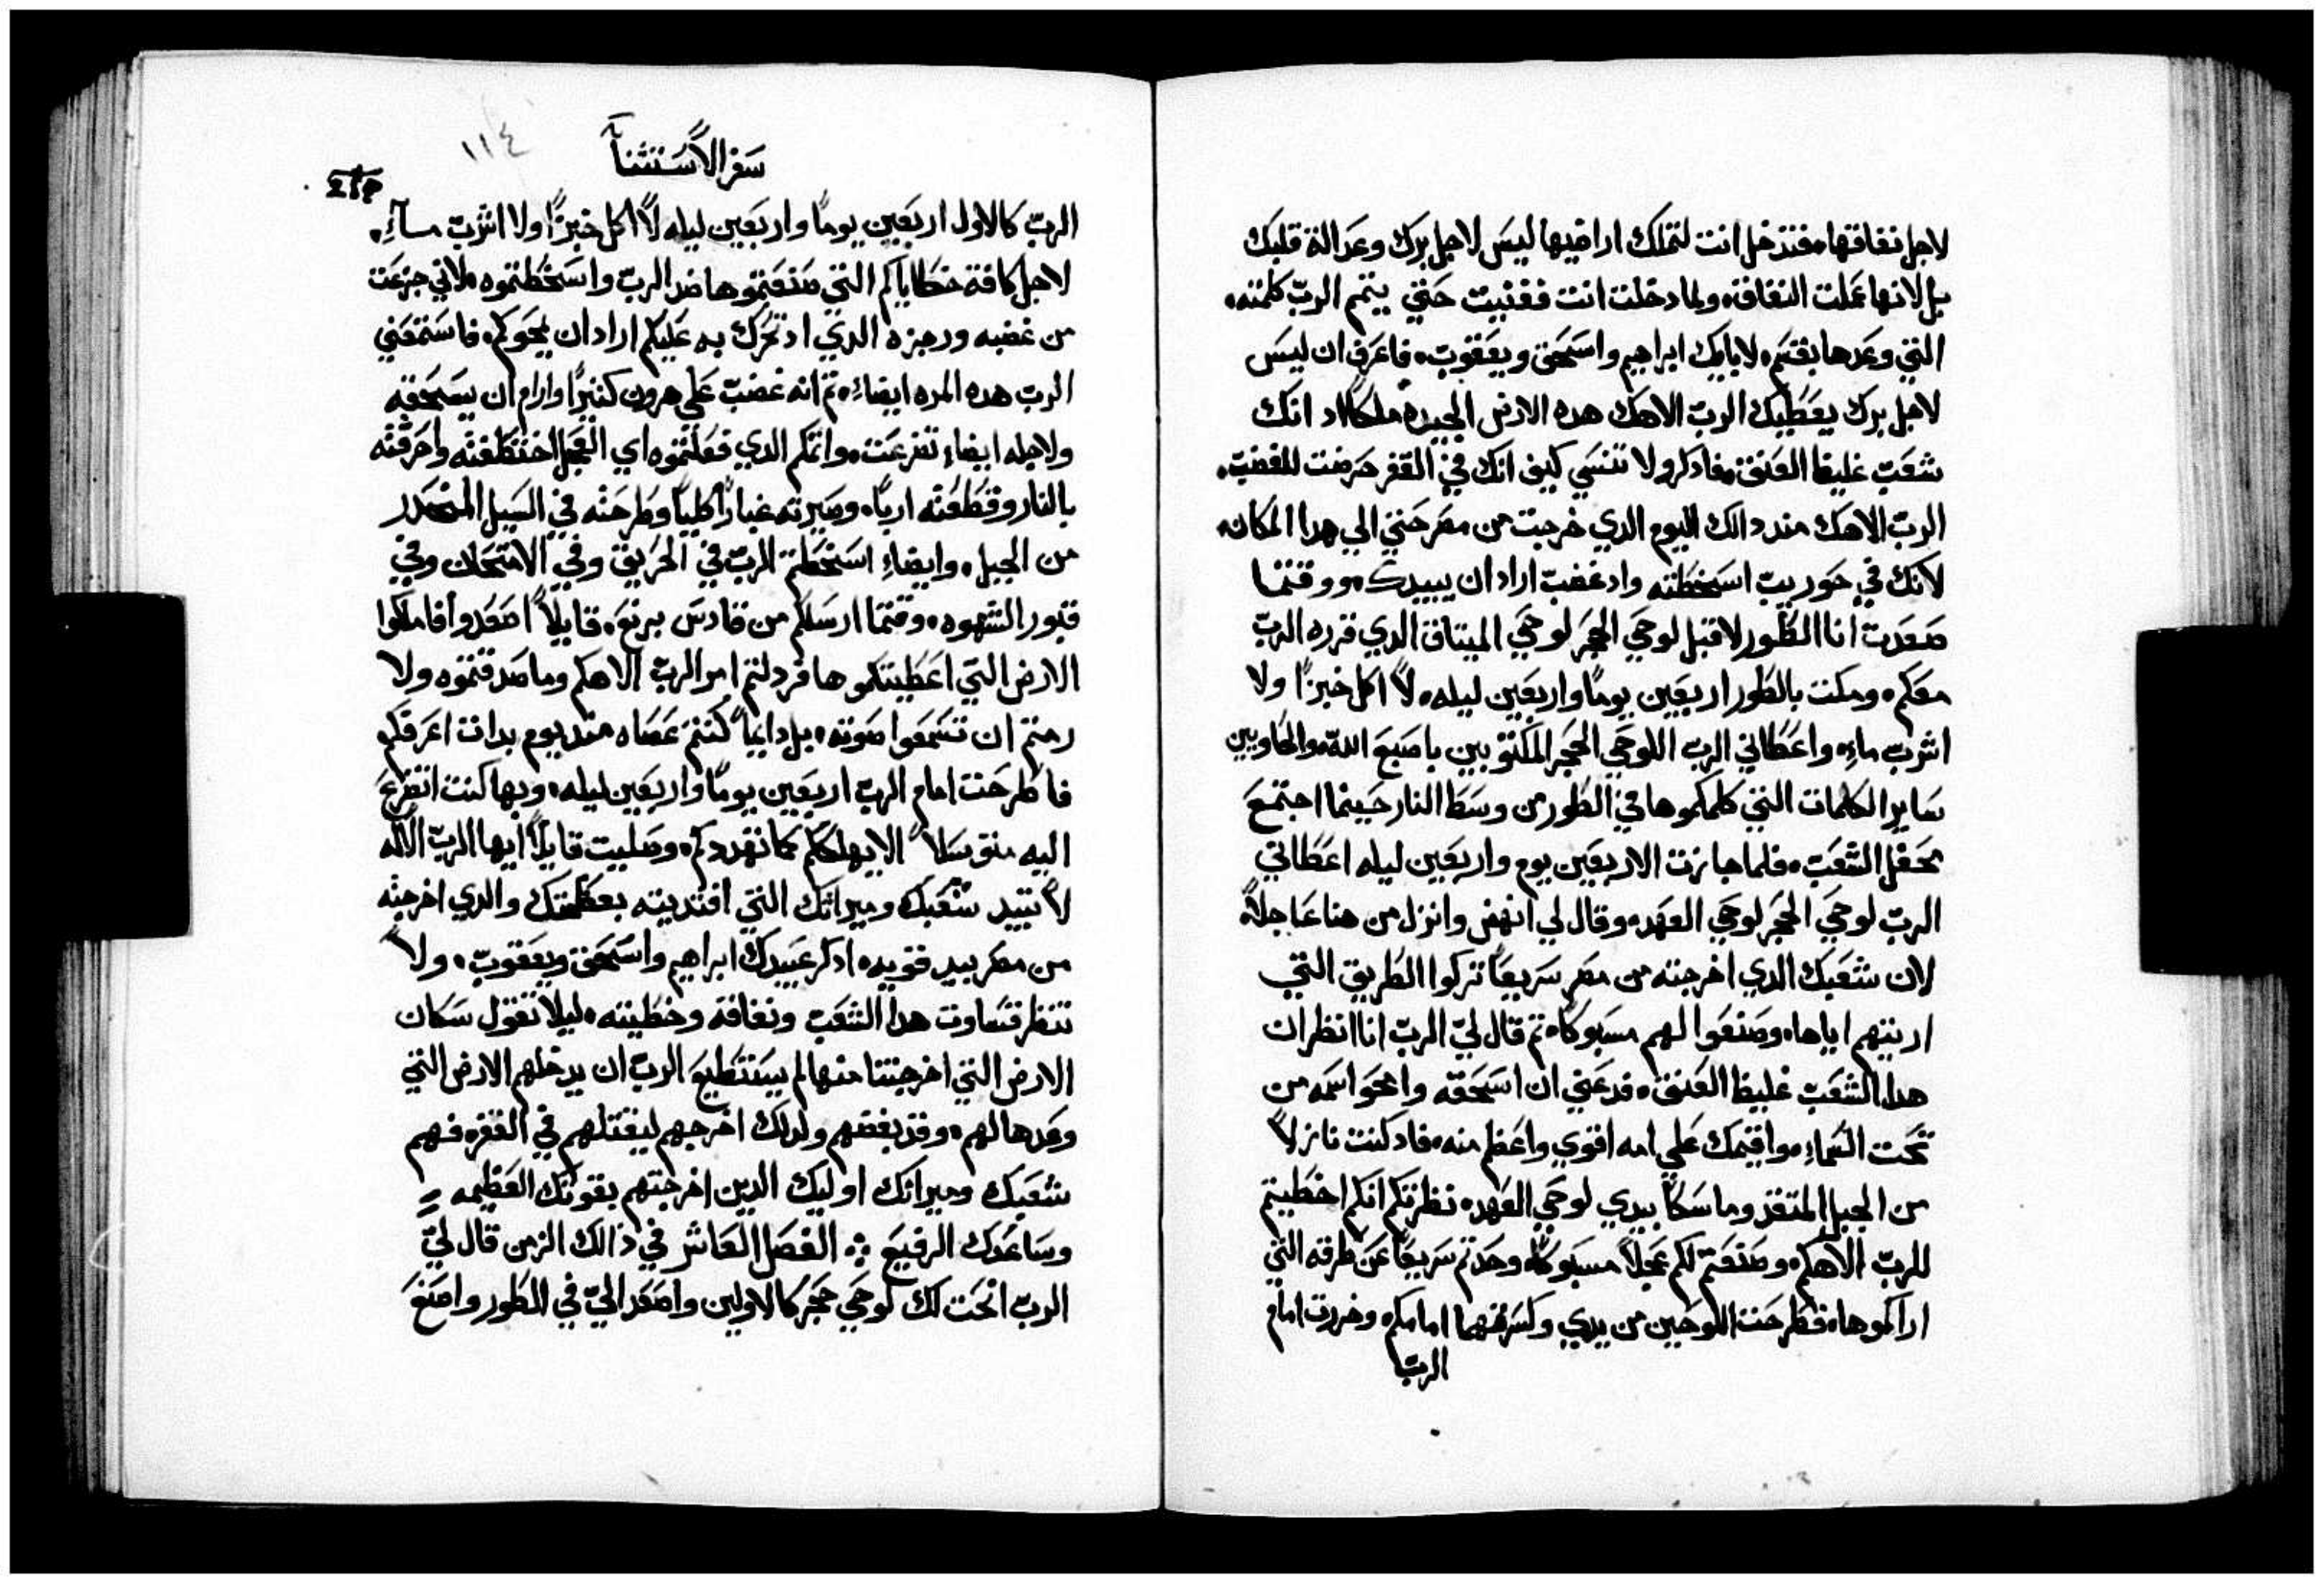 لاجل نفاقها، فتدخل انت لتملك اراضيها ليس لاجل برك وعدالة قلبك
بل لانها عملت النفاق، ولما دخلت انت ففنيت حتي يتمم الرب كلمته،
التي وعدها بقسم، لابايك ابراهيم واسحق ويعقوب، فاعرف ان ليس
لاجل برك يعطيك الرب الاهك هده الارض الجيده ملكا اد انك
شعب غليظ العنق، فادكر ولا تنسي كيف انك في القفر حرضت للغضب،
الرب الاهك مند دالك اليوم الدي خرجت من مصر حتي الي هدا المكان،
لانك في حوريب اسخطته واد غضب اراد ان يبيدك، ووقتما
صعدت انا الطور لاقبل لوحي الحجر لوحي الميتاق الدي قرره الرب
معكم، ومكت بالطور اربعين يوما واربعين ليله، لا اكل خبزا ولا
اشرب ماء، واعطاني الرب اللوحي الحجر المكتوبين باصبع الله، والحاويين
ساير الكلمات التي كلمكموها في الطور من وسط النار حينما اجتمع
محفل الشعب، فلما جازت الاربعين يوم واربعين ليله اعطاني
الرب لوحي الحجر لوحي العهد، وقال لي انهض وانزل من هنا عاجلا،
لان شعبك الدي اخرجته من مصر سريعا تركوا الطريق التي
اريتهم اياها، وصنعوا لهم مسبوكا، تم قال لي الرب انا انظر ان
هدا الشعب غليظ العنق، فدعني ان اسحقه وامحو اسمه من
تحت السماء، واقيمك علي امه اقوي واعظم منه، فاد كنت نازلا
من الجبل المتقد وماسكا بيدي لوحي العهد، نظرتكم انكم اخطيتم
للرب الاهكم، وصنعتم لكم عجلا مسبوكا، وحدتم سريعا عن طرقه التي
اراكموها، فطرحت اللوحين من يدي وكسرتهما امامكم، وخررت امام
الرب
سفر الاستثنا
١١٤
الرب كالاول اربعين يوما واربعين ليله لا اكل خبزا ولا اشرب ماء،
لاجل كافة خطاياكم التي صنعتموها ضد الرب واسخطتموه، لاني جزعت
من غضبه ورجزه الدي اد تحرك به عليكم اراد ان يمحوكم، فاستمعني
الرب هده المره ايضاء، تم انه غضب علي هرون كتيرا وارام ان يسحقه
ولاجله ايضاء تضرعت، واتمكم الدي فعلتموه اي العجل اختطفته واحرقته
بالنار وقطعته اربا، وصيرته غبارا كليا وطرحته في السيل المنحدر
من الجبل، وايضاء اسخطتم الرب في الحريق وفي الامتحان وفي
قبور الشهوه، ووقتما ارسلكم من قادس برنع، قايلا اصعدوا فاملكوا
الارض التي اعطيتكموها فردلتم امر الرب الاهكم وما صدقتموه ولا
رمتم ان تسمعوا صوته، بل دايما كنتم عصاه مند يوم بدات اعرفكم
فاطرحت امام الرب اربعين يوما واربعين ليله، وبها كنت اتضرع
اليه متوسلا الا يهلككم كما تهددكم، وصليت قايلا ايها الرب الاله
لا تبيد شعبك وميراتك التي افتديته بعظمتك والدي اخرجته
من مصر بيد قويه، ادكر عبيدك ابراهيم واسحق ويعقوب، ولا
تنظر قساوت هدا الشعب ونفاقه وخطيته، ليلا تقول سكان
الارض التي اخرجتنا منها لم يستطيع الرب ان يدخلهم الارض التي
وعدها لهم، وقد بغضهم ولدلك اخرجهم ليقتلهم في القفر، فهم
شعبك وميراتك اوليك الدين اخرجتهم بقوتك العظيمه
وساعدك الرفيع ⁘ الفصل العاشر في ذالك الزمن قال لي
الرب انحت لك لوحي حجر كالاولين واصعد الي في الطور واصنع